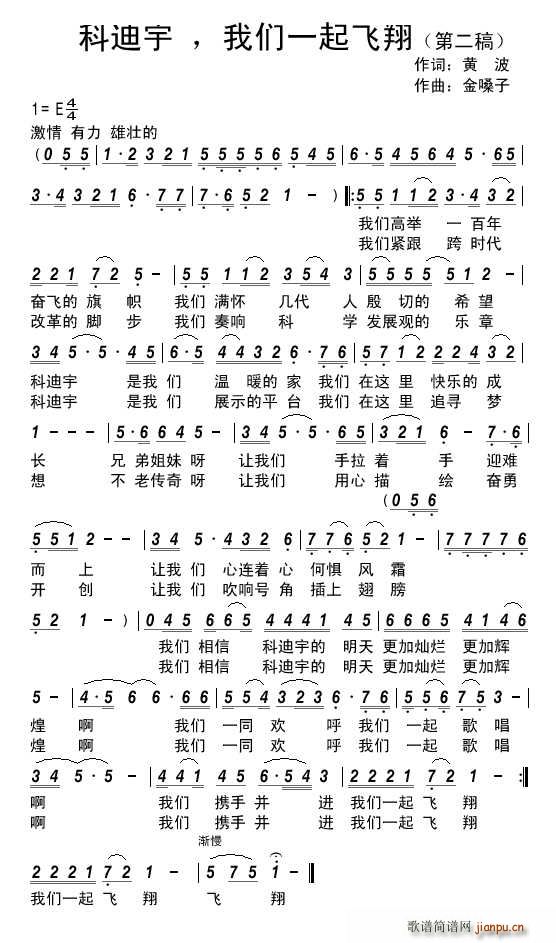 科迪宇 ，我们一起飞翔（第二稿）
作词：黄 波
作曲：金嗓子
1=E 4/4
激情 有力 雄壮的
(0 5 5 | 1·2 3 2 1 | 5 5 5 5 5 6 | 5 4 5 | 6·5 4 5 6 4 5·6 5 |
3·4 3 2 1 6·7 7 | 7·6 5 2 1 - ) ‖: 5 5 1 1 2 3·4 3 2 |
我们高举 一 百年
我们紧跟 跨 时代
2 2 1 7 2 5 - | 5 5 1 1 2 3 5 4 3 | 5 5 5 5 5 1 2 - |
奋飞的 旗 帜 我们 满怀 几代 人 殷 切的 希 望
改革的 脚 步 我们 奏响 科 学 发展观的 乐 章
3 4 5·5·4 5 | 6·5 4 4 2 4 3 6·7 6 | 5 7 1 2 2 2 4 3 2 |
科迪宇 是我 们 温 暖的 家 我们 在这 里 快乐的 成
科迪宇 是我 们 展示的平 台 我们 在这 里 追寻 梦
1 - - - | 5·6 6 4 5 - | 3 4 5·5·3 | 3 2 1 6 - 7·6 |
长 兄 弟姐妹 呀 让我们 手拉 着 手 迎难
想 不 老传奇 呀 让我们 用心 描 绘 奋勇
(0 5 6
5 5 1 2 - - | 3 4 5·4 3 4 | 6·1 7 7 6 | 5 2 1 - | 7 7 7 7 7 6
而 上 让我 们 心连着 心 何惧 风 霜
开 创 让我 们 吹响号 角 插上 翅 膀
5 2 1 - ) | 0 4 5 6 6 5 | 4 4 4 1 4 5 | 6 6 6 5 4 1 4 6 |
我们 相信 科迪宇的 明天 更加灿烂 更加辉
我们 相信 科迪宇的 明天 更加灿烂 更加辉
5 - | 4·5 6 6·6 6 | 5 5 4 3 2 3 6· | 7·6 | 5 5 6 7 5 |
煌 啊 我们 一同 欢 呼 我们 一起 歌 唱
煌 啊 我们 一同 欢 呼 我们 一起 歌 唱
3 4 5·5 | 4 4 1 4 5 6·5 4 3 | 2 2 2 1 7 2 1 - :‖
啊 我们 携手 并 进 我们一起 飞 翔
啊 我们 携手 并 进 我们一起 飞 翔
渐慢
2 2 2 1 7 2 1 - | 5 7 5 1 - ‖
我们一起 飞 翔 飞 翔
歌谱简谱网
jianpu.cn